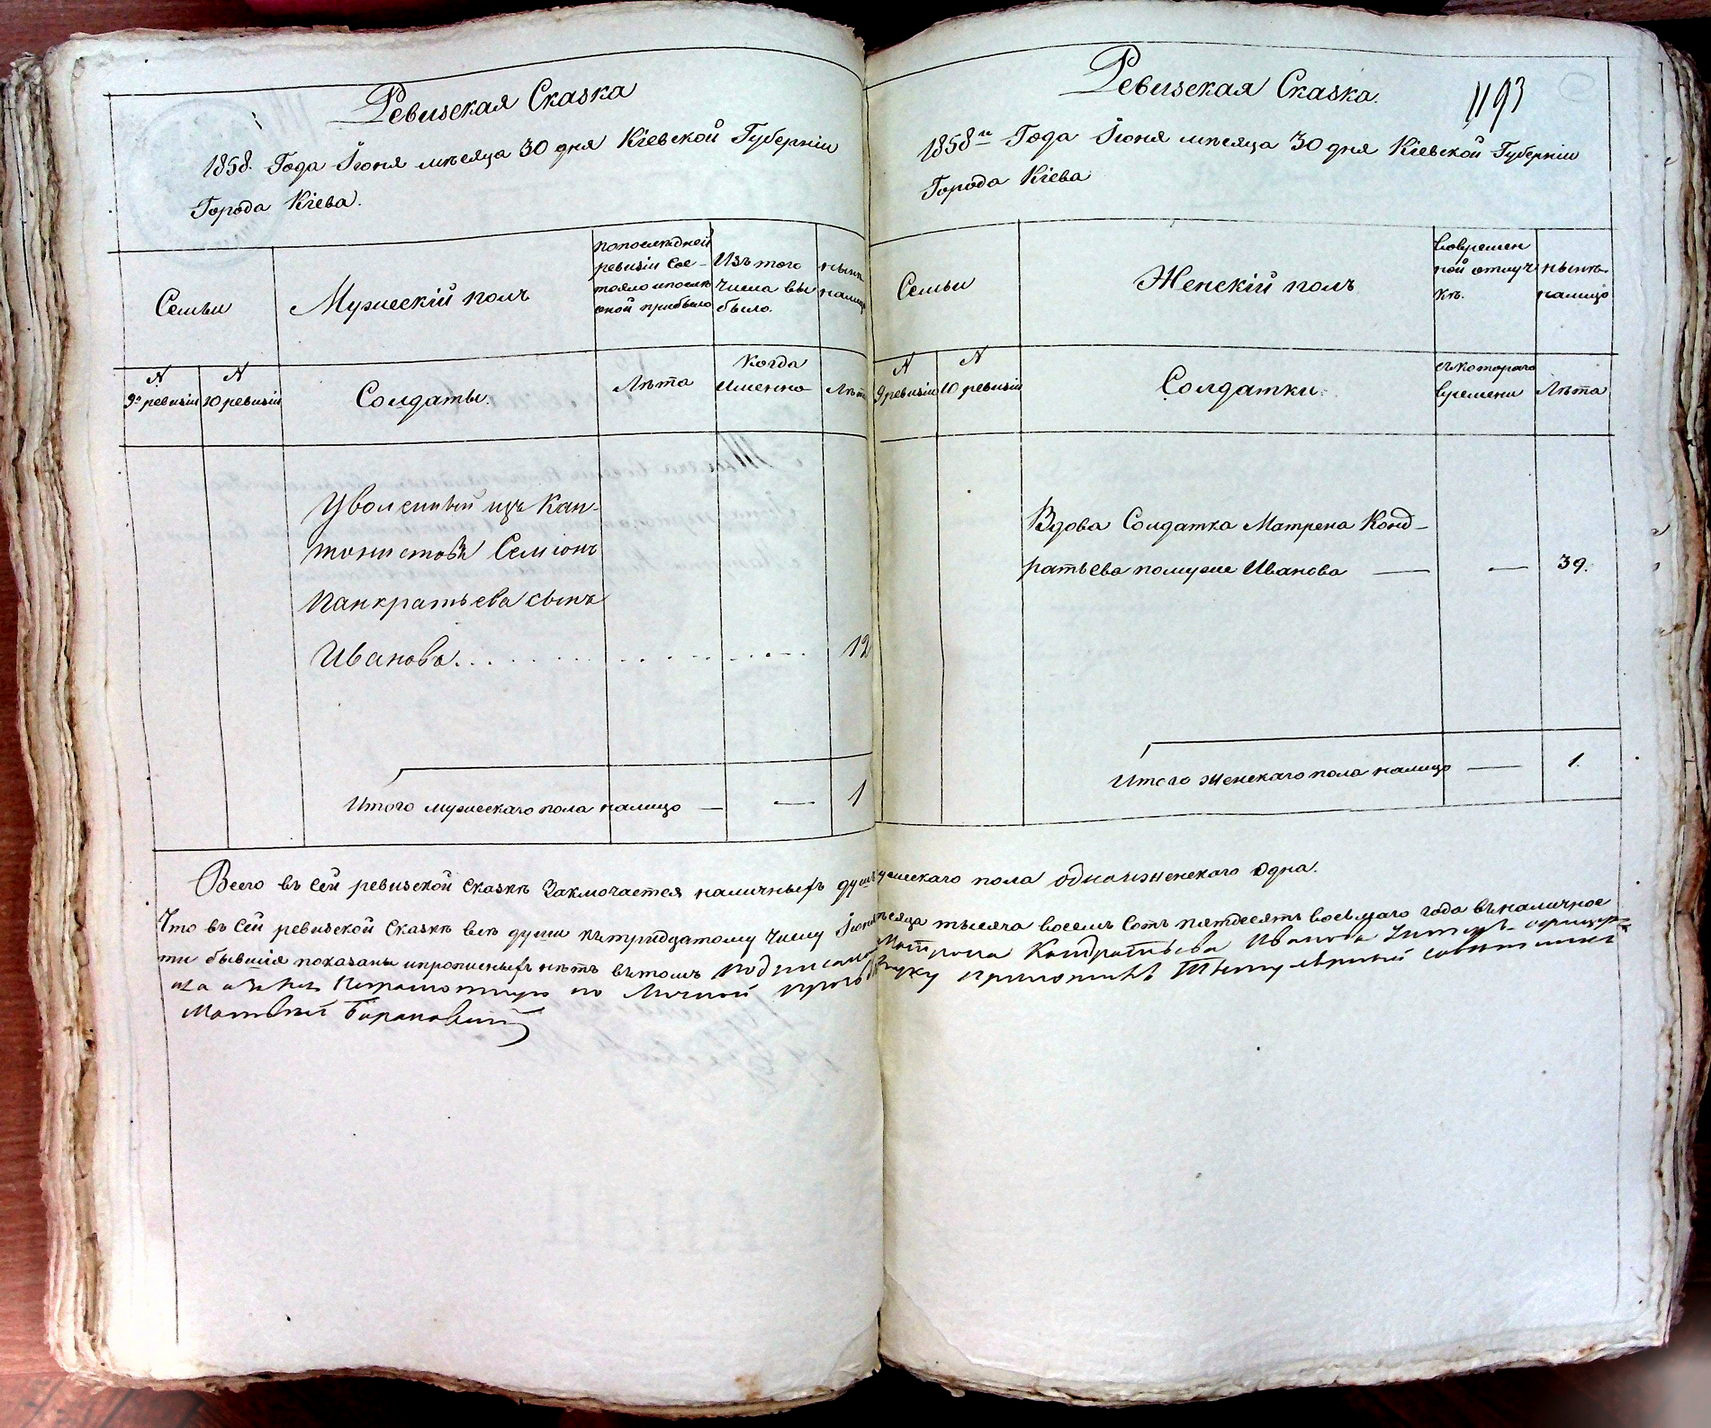 Ревизская Сказка
1858. Года Іюня мѣсяца 30 дня Кіевской Губерніи
Города Кіева.
Семьи
Мужескій полъ
по последней
ревизіи сос-
тояло и после
оной прибыло
Изъ того
числа вы
было.
нынѣ
налицо
№
9й ревизіи
№
10 ревизіи
Солдаты.
Лѣта
Когда
именно
Лѣта
Уволенный изъ Кан-
тонистовъ Семіонъ
Панкратьева сынъ
Ивановъ. 12
Итого мужескаго пола налицо — — 1
Ревизская Сказка.
1193
1858го Года Іюня мѣсяца 30 дня Кіевской Губерніи
Города Кіева
Семьи
Женскій полъ
Вовремен
ной отлуч
кѣ.
нынѣ
налицо
№
9 ревизіи
№
10 ревизіи
Солдатки.
съ котораго
времени
Лѣта
Вдова Солдатка Матрена Конд-
ратьева помуже Иванова — — 39.
Итого женскаго пола налицо — 1.
Всего въ сей ревизской сказкѣ заключается наличныхъ душъ мужескаго пола одна и женскаго одна.
Что въ сей ревизской сказкѣ всѣ души къ тридцатому числу Іюня мѣсяца тысяча восемь сотъ пятдесятъ восьмаго года въ наличнос
ти бывшія показаны и прописныхъ нѣтъ въ томъ подписалась Матрона Кондратьева Иванова
а за нее неграмотную по личной прозьбѣ руку приложилъ Титулярный совѣтникъ
Матвѣй Барановскій